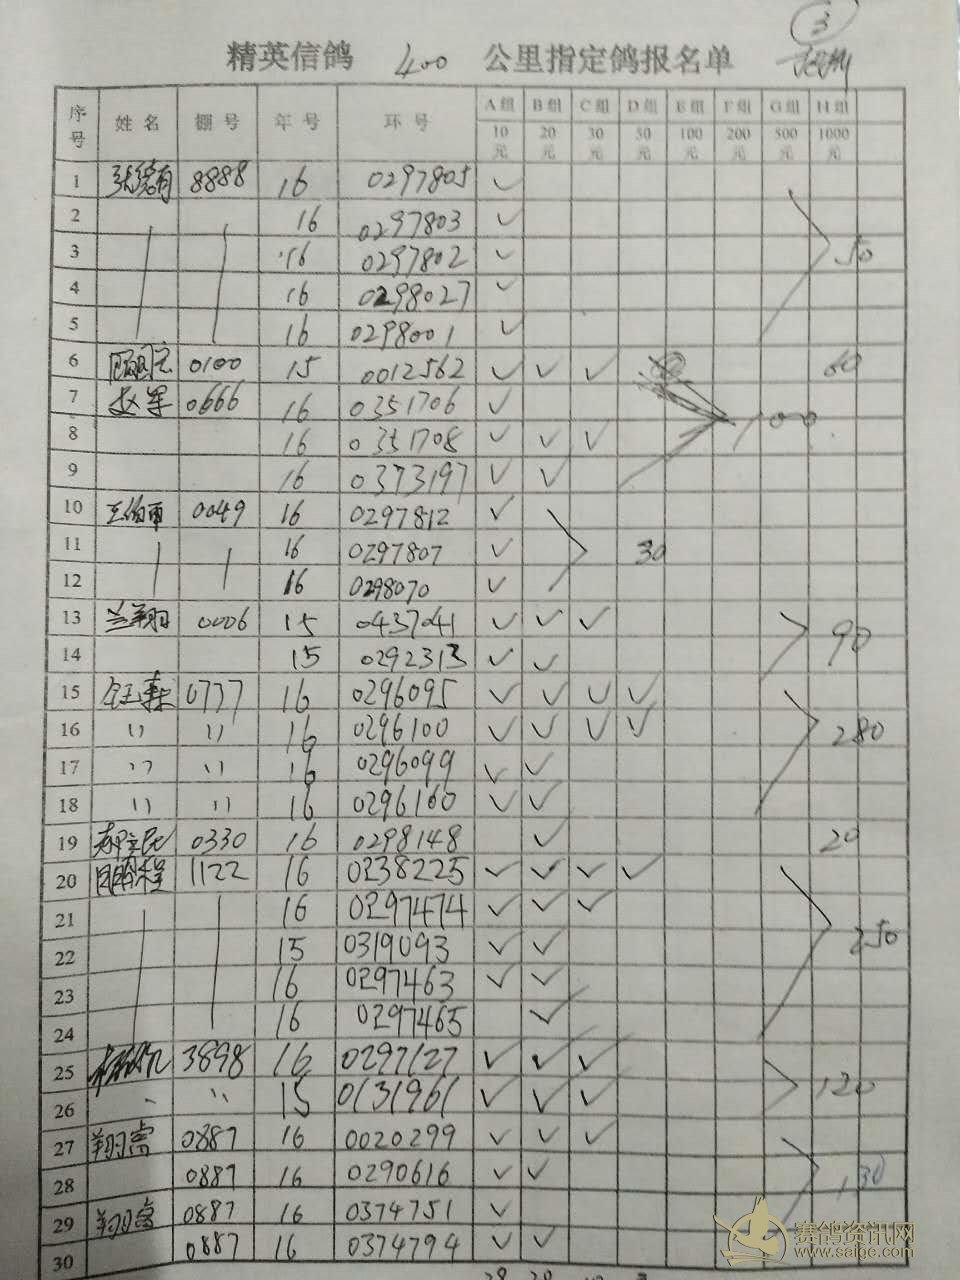 3
精英信鸽 400 公里指定鸽报名单
序号 姓名 棚号 年号 环号 A组 B组 C组 D组 E组 F组 G组 H组
10元 20元 30元 50元 100元 200元 500元 1000元
1 8888 16 0297805 ✓
2 16 0297803 ✓
3 16 0297802 ✓ 50
4 16 0298027 ✓
5 16 0298001 ✓
6 0100 15 0012562 ✓ ✓ ✓ 60
7 赵军 0666 16 0351706 ✓ 100
8 16 0351708 ✓ ✓ ✓
9 16 0373197 ✓ ✓
10 0049 16 0297812 ✓
11 16 0297807 ✓ 30
12 16 0298070 ✓
13 兰翔 0006 15 0437041 ✓ ✓ ✓ 90
14 15 0292313 ✓ ✓
15 0737 16 0296095 ✓ ✓ ✓ ✓
16 〃 〃 16 0296100 ✓ ✓ ✓ ✓ 280
17 〃 〃 16 0296099 ✓ ✓
18 〃 〃 16 0296160 ✓ ✓
19 0330 16 0298148 ✓ 20
20 1122 16 0238225 ✓ ✓ ✓ ✓
21 16 0297474 ✓ ✓ ✓ 250
22 15 0319093 ✓ ✓
23 16 0297463 ✓ ✓
24 16 0297465 ✓
25 3898 16 0297127 ✓ ✓ ✓ 120
26 〃 〃 15 0131961 ✓ ✓ ✓
27 翔富 0887 16 0020299 ✓ ✓ ✓
28 0887 16 0290616 ✓ ✓ 130
29 翔富 0887 16 0374751 ✓
30 0887 16 0374794 ✓ ✓
赛鸽资讯网
www.saigc.com